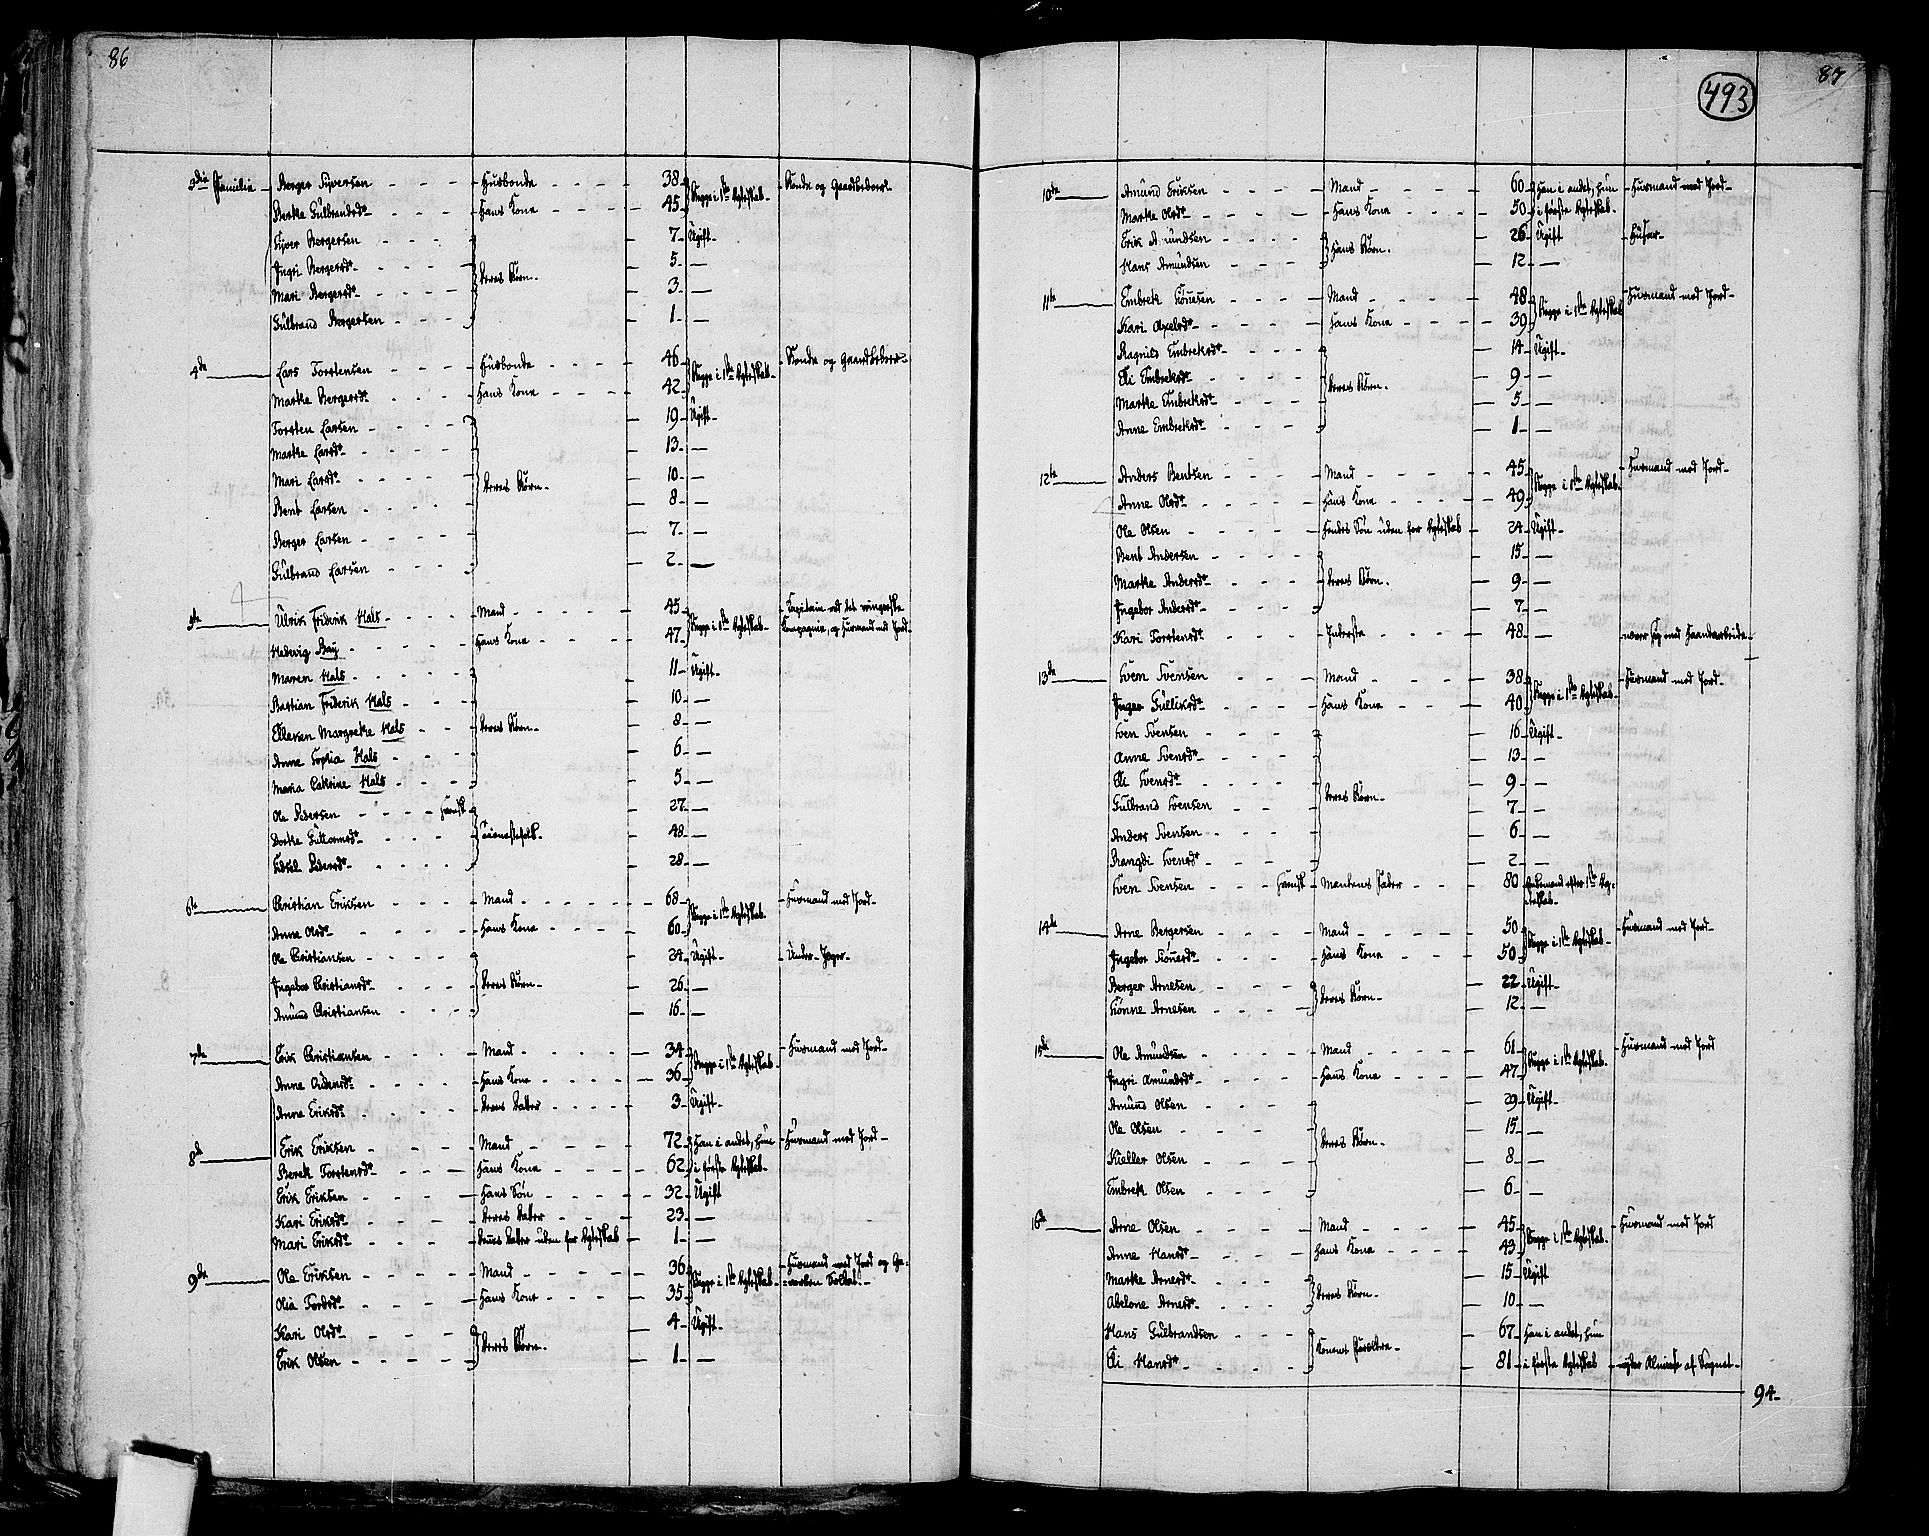 86
3die Familie Berger Syversen Husbonde 38 Begge i 1ste Ægteskab Bonde og Gaardbeboer
Berthe Gulbrandsdr Hans Kone 45
Syver Bergersen 7 Ugift
Ingri Bergersdr Deres Børn 5 —
Mari Bergersdr 3 —
Gulbrand Bergersen 1 —
4de Lars Torstensen Husbonde 46 Begge i 1ste Ægteskab Bonde og Gaardbeboer
Marthe Bergersdr Hans Kone 42
Torsten Larsen 19 Ugift
Marthe Larsdr 13 —
Mari Larsdr Deres Børn 10 —
Bent Larsen 8 —
Berger Larsen 7 —
Gulbrand Larsen 2 —
5te Ulrik Friderik Hals Mand 45 Begge i 1ste Ægteskab Kapitain ved det vingerske
Hedevig Bay Hans Kone 47 Kompagnie, og Husmand med Jord
Maren Hals 11 Ugift
Bastian Friderik Hals 10 —
Elleken Margrethe Hals Deres Børn 8 —
Anne Sophia Hals 6 —
Maria Cathrine Hals 5 —
Ole Pedersen 27 —
Dorthe Guttormsdr Tienestefolk 48 —
Sidsel Pedersdr 28 —
6te Christian Eriksen Mand 68 Begge i 1ste Ægteskab Husmand med Jord
Anne Olsdr Hans Kone 60
Ole Christiansen 24 Ugift Under-Jæger
Ingebor Christiansdr Deres Børn 26 —
Amund Christiansen 16 —
7de Erik Christiansen Mand 34 Begge i 1ste Ægteskab Husmand med Jord
Anne Hans Kone 36
Anne Eriksdr Deres Datter 3 Ugift
8de Erik Eriksen Mand 72 Han i andet, hun Husmand med Jord
Berek Torstensdr Hans Kone 62 i første Ægteskab
Erik Eriksen Hans Søn 32 Ugift
Kari Eriksdr Deres Datter 23 —
Mari Eriksdr Datter uden for Ægteskab 1 —
9de Ole Eriksen Mand 36 Begge i 1ste Ægteskab Husmand med Jord og Ge-
Olia Hans Kone 35 -vorben Soldat
Kari Olsdr Deres Børn 4 Ugift
Erik Olsen 1 —
87
493
10de Amund Eriksen Mand 60 Han i andet, hun Husmand med Jord
Marthe Olsdr Hans Kone 50 i første Ægteskab
Erik Amundsen Hans Børn 26 Ugift Husar
Hans Amundsen 12 —
11te Embrek Sønesen Mand 48 Begge i 1ste Ægteskab Husmand med Jord
Kari Axelsdr Hans Kone 39
Ragnild Embreksdr 14 Ugift
Eli Embreksdr Deres Børn 9 —
Marthe Embreksdr 5 —
Anne Embreksdr 1 —
12te Anders Bentsen Mand 45 Begge i 1ste Ægteskab Husmand med Jord
Anne Olsdr Hans Kone 49
Ole Olsen Hendes Søn uden for Ægteskab 24 Ugift
Bent Andersen 15 —
Marthe Andersdr Deres Børn 9 —
Ingebor Andersdr 7 —
Kari Torstensdr Inderste 48 — nærer sig med Haandarbeide
13de Sven Svensen Mand 38 Begge i 1ste Ægteskab Husmand med Jord
Inger Gulliksdr Hans Kone 40
Sven Svensen 16 Ugift
Anne Svensdr 13 —
Eli Svensdr Deres Børn 9 —
Gulbrand Svensen 7 —
Anders Svensen 6 —
Rangdi Svensdr 2 —
Sven Svensen Mandens Fader 80 Enkemand efter 1ste Æg-
teskab
14de Arne Bergersen Mand 50 Begge i 1ste Ægteskab Husmand med Jord
Ingebor Sønesdr Hans Kone 50
Berger Arnesen Deres Børn 22 Ugift
Sønne Arnesen 12 —
15de Ole Amundsen Mand 61 Begge i 1ste Ægteskab Husmand med Jord
Ingri Amundsdr Hans Kone 47
Amund Olsen 29 Ugift
Ole Olsen Deres Børn 15 —
Kieller Olsen 8 —
Embrek Olsen 6 —
16de Arne Olsen Mand 45 Begge i 1ste Ægteskab Husmand med Jord
Anne Hansdr Hans Kone 43
Marthe Arnesdr Deres Børn 15 Ugift
Abelone Arnesdr 10 —
Hans Gulbrandsen Konens Forældre 67 Han i andet, hun
Eli Hansdr 81 i første Ægteskab nyder Almisse af Sognet
94